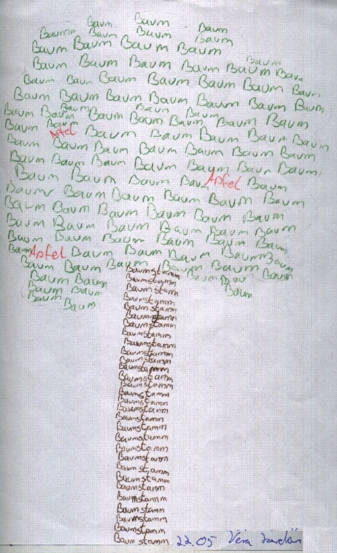 Baum Baum
Baum Baum Baum Baum
Baum Baum Baum Baum Baum
Baum Baum Baum Baum Baum Baum Baum
Baum Baum Baum Baum Baum Baum Baum
Baum Baum Baum Baum Baum Baum Baum
Baum Baum Baum Baum Baum
Baum Baum Baum Baum Baum Baum
Baum Baum Apfel Baum Baum Baum Baum Baum
Baum Baum Baum Baum Baum Baum Baum
Baum Baum Baum Baum Baum Baum Baum
Baum Baum Baum Baum Apfel Baum
Baum Baum Baum Baum Baum Baum
Baum Baum Baum Baum Baum Baum
Baum Baum Baum Baum Baum Baum
Baum Baum Baum Baum Baum Baum
Baum Apfel Baum Baum Baum Baum Baum
Baum Baum Baum Baum Baum Baum
Baum Baum Baumstamm Baum Baum
Baum Baum Baumstamm Baum
Baum Baumstamm
Baum Baumstamm
Baumstamm
Baumstamm
Baumstamm
Baumstamm
Baumstamm
Baumstamm
Baumstamm
Baumstamm
Baumstamm
Baumstamm
Baumstamm
Baumstamm
Baumstamm
Baumstamm
Baumstamm
Baumstamm
Baumstamm
Baumstamm
Baumstamm
Baumstamm
Baumstamm
Baumstamm
Baumstamm 22.05 Vera